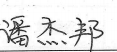 潘杰邦